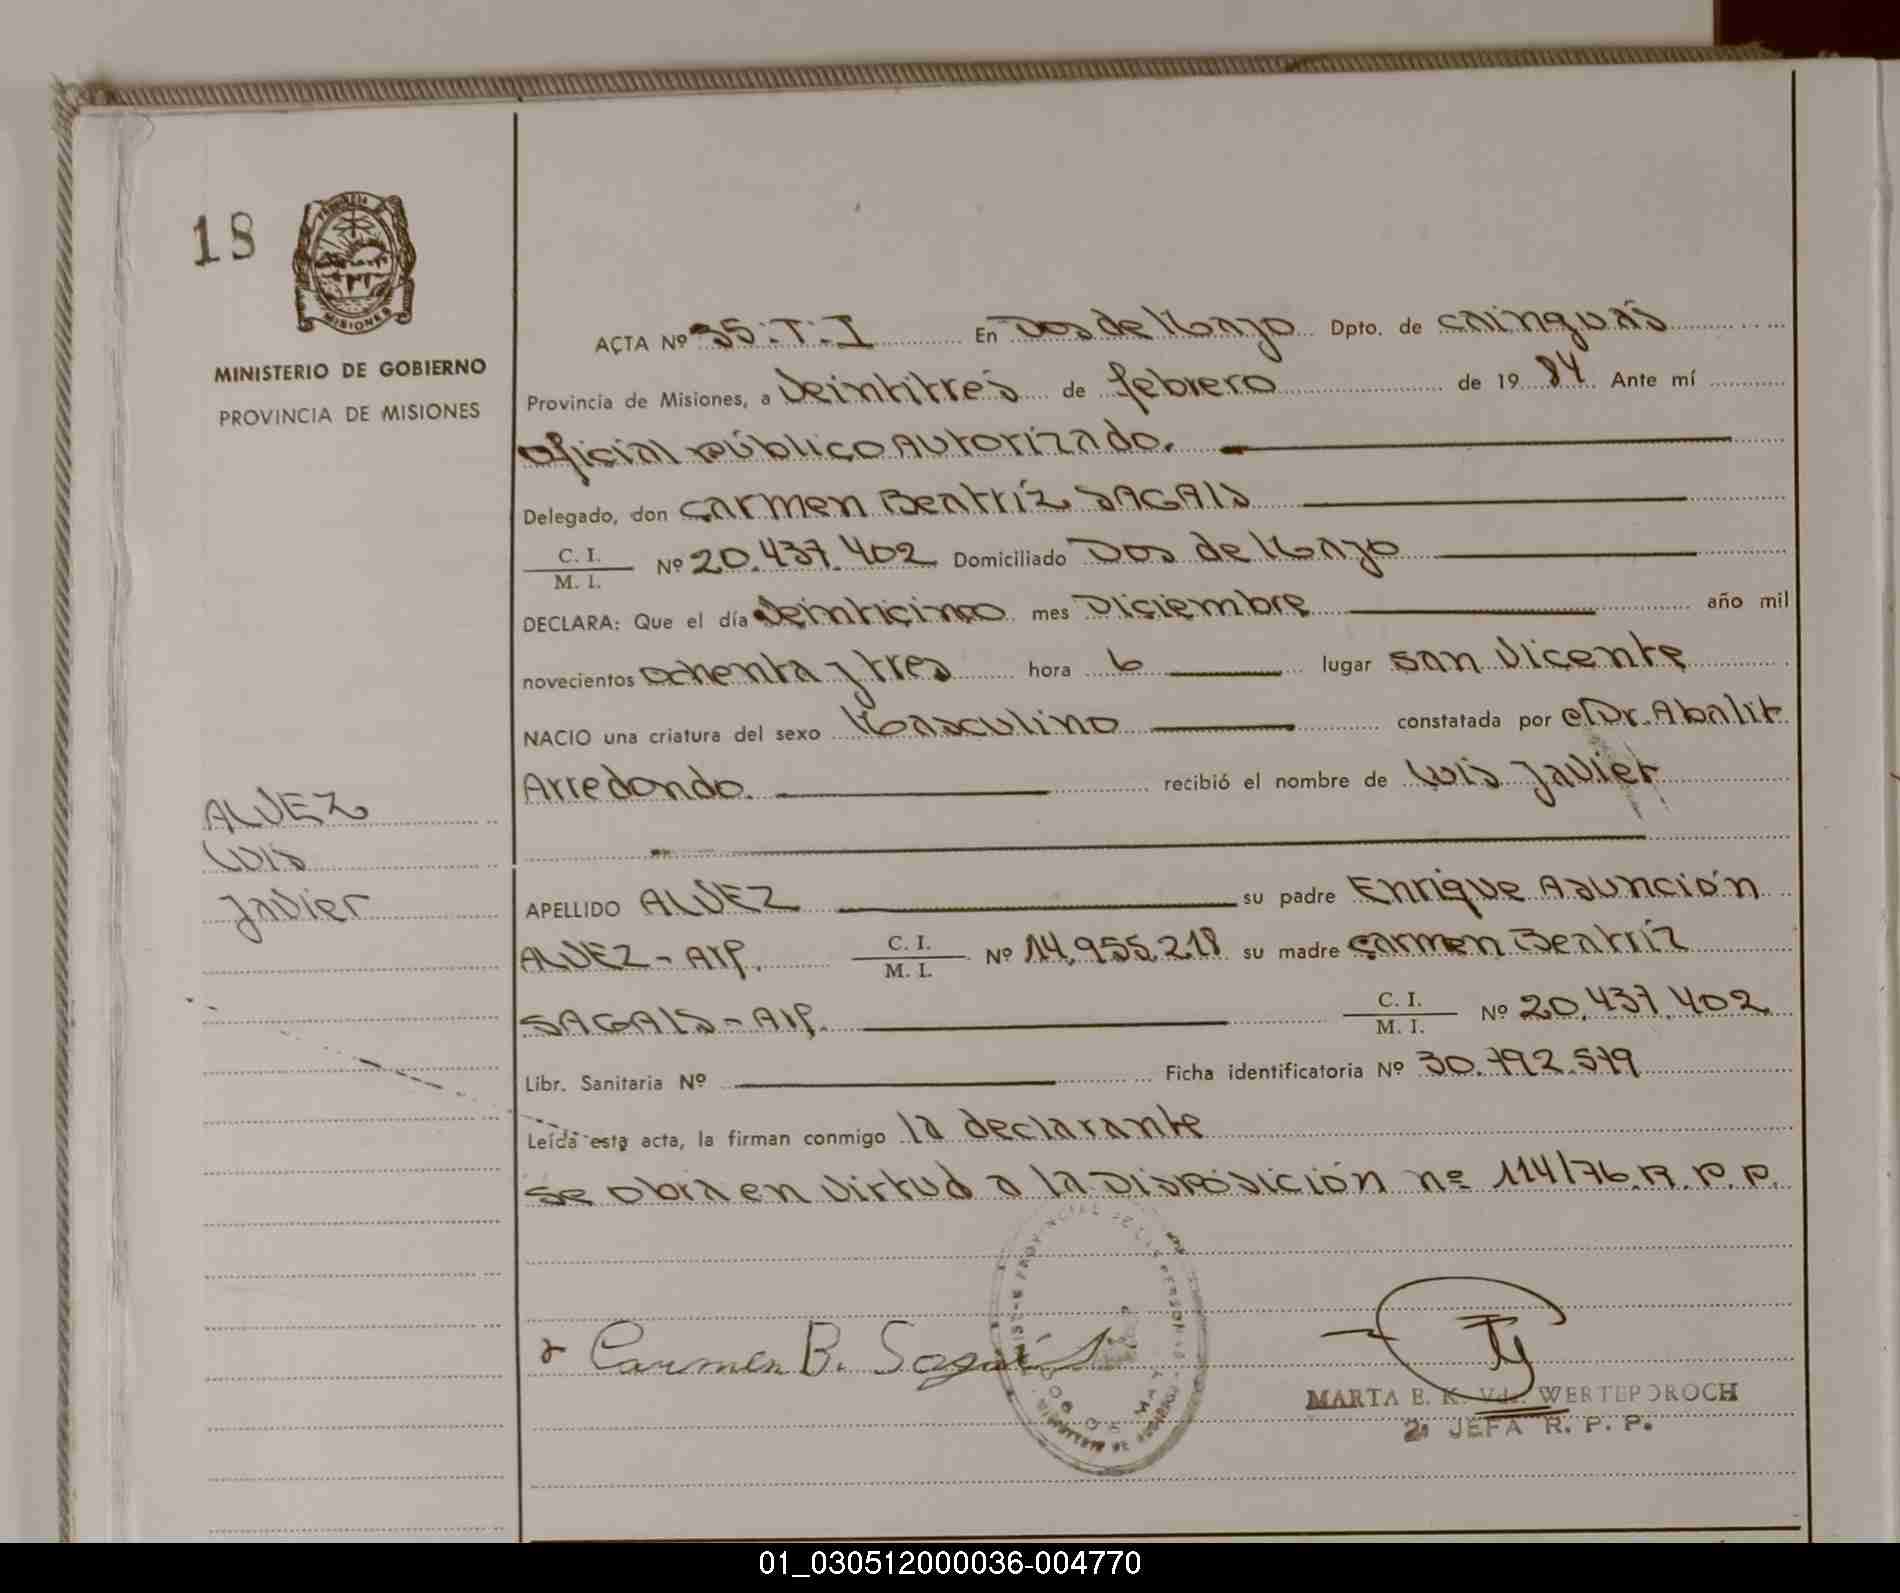 18
PROVINCIA
MISIONES
MINISTERIO DE GOBIERNO
PROVINCIA DE MISIONES
ACTA Nº 35-T-I En Dos de Mayo Dpto. de Cainguás
Provincia de Misiones, a veintitrés de febrero de 1984 Ante mí
oficial público Autorizado.
Delegado, don Carmen Beatríz SAGAIS
C. I.
M. I. Nº 20.437.402 Domiciliado Dos de Mayo
DECLARA: Que el día veinticinco mes Diciembre año mil
novecientos ochenta y tres hora 6 lugar San Vicente
NACIO una criatura del sexo Masculino constatada por el Dr. Abalit
Arredondo. recibió el nombre de Luis Javier
ALVEZ
Luis
Javier
APELLIDO ALVEZ su padre Enrique Asunción
ALVEZ - Arp. C. I.
M. I. Nº 14.955.218 su madre Carmen Beatríz
SAGAIS - Arp. C. I.
M. I. Nº 20.437.402
Libr. Sanitaria Nº Ficha identificatoria Nº 30.792.579
Leída esta acta, la firman conmigo la declarante
se obra en virtud a la Disposición nº 114/76.R.P.P.
Carmen B. Sagais
MARTA E. K. Vda. WERTEPOROCH
2ª JEFA R. P. P.
01_030512000036-004770